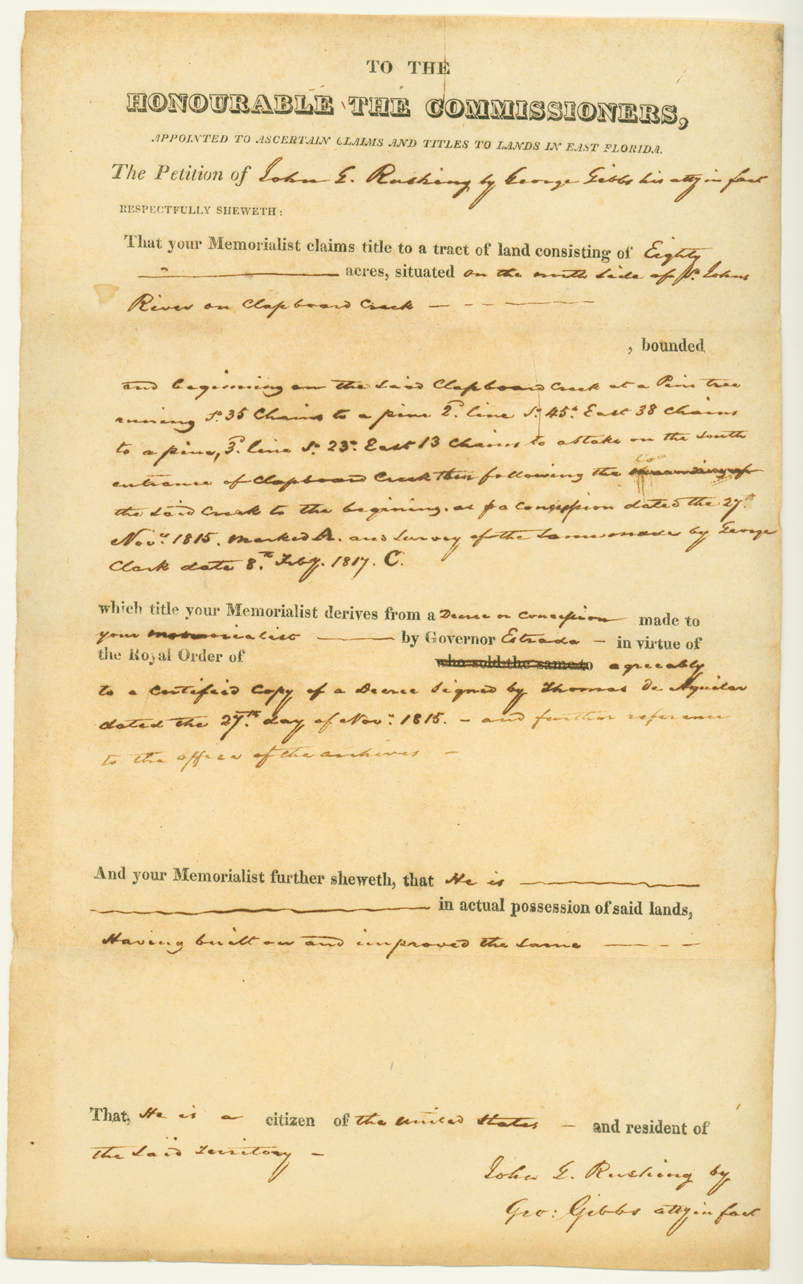 TO THE
HONOURABLE THE COMMISSIONERS,
APPOINTED TO ASCERTAIN CLAIMS AND TITLES TO LANDS IN EAST FLORIDA.
The Petition of John G. Rushing by George Gibbs his atty in fact
RESPECTFULLY SHEWETH:
That your Memorialist claims title to a tract of land consisting of Eighty
acres, situated on the north side of St. Johns
River on Clapboard Creek
, bounded
and begining on the said Clapboard Creek at a Pine tree
running So. 35 Chains to a pine 2d. line So. 45o. East 38 Chains
to a pine, 3d. line So. 23o. East 13 Chains to a stake on the South
entrance of Clapboard Creek then following the
the said Creek to the begining. as p a Concession dated the 27th.
Novr. 1815. marked A. and Survey of the same made by George
Clark date 8th. Feby. 1817. C.
which title your Memorialist derives from a Decree or Concession made to
your memorialist by Governor Estrada – in virtue of
the Royal Order of who sold the same to agreeably
to a Certified Copy of a Decree Signed by Thomas de Aguilar
dated the 27th. day of Novr. 1815. – and further reference
to the office of the archives –
And your Memorialist further sheweth, that He is
in actual possession of said lands,
Having built on and improved the same
That, He is a citizen of the United States – and resident of
the said Territory –
John G. Rushing by
Geo: Gibbs atty in fact